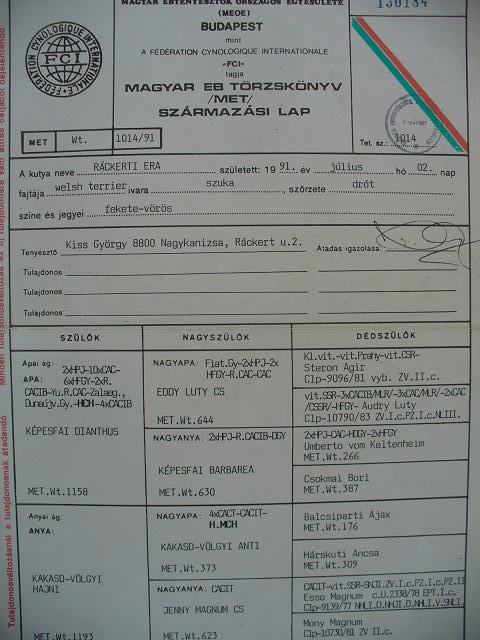 MAGYAR EBTENYÉSZTŐK ORSZÁGOS EGYESÜLETE
(MEOE)
BUDAPEST
mint
A FÉDÉRATION CYNOLOGIQUE INTERNATIONALE
»FCI«
tagja
MAGYAR EB TÖRZSKÖNYV
/MET/
SZÁRMAZÁSI LAP
130184
FÉDÉRATION CYNOLOGIQUE INTERNATIONALE
FCI
MET Wt. 1014/91
Tet. sz.: 1014
A kutya neve RÁCKERTI ERA született: 1991. év július hó 02. nap
fajtája welsh terrier ivara szuka, szőrzete drót
színe és jegyei fekete-vörös
Tenyésztő Kiss György 8800 Nagykanizsa, Ráckert u.2. Átadás igazolása:
Tulajdonos
Tulajdonos
Tulajdonos
SZÜLŐK
Apai ág:
APA:
2xHPJ-10xCAC-
6xHFGY-2xR.
CACIB-Yu.R.CAC-Zalaeg.,
Dunaújv.Gy.-HCH-4xCACIB
KÉPESFAI DIANTHUS
MET.Wt.1158
Anyai ág:
ANYA:
KAKASD-VÖLGYI
HAJNI
MET.Wt.1193
NAGYSZÜLŐK
NAGYAPA: Fiat.Gy-2xHPJ-2x
HFGY-R.CAC-CAC
EDDY LUTY CS
MET.Wt.644
NAGYANYA: 2xHPJ-R.CACIB-DGY
KÉPESFAI BARBAREA
MET.Wt.630
NAGYAPA: 4xCACT-CACIT-
H.MCH
KAKASD-VÖLGYI ANTI
MET.Wt.373
NAGYANYA: CACIT
JENNY MAGNUM CS
MET.Wt.623
DÉDSZÜLŐK
Kl.vit.-vit.Prahy-vit.CSR-
Steron Agir
Clp-9096/81 vyb. ZV.II.c.
vít.SSR-3xCACIB/MLR/-3xCAC/MLR/-2xCAC
/CSSR/-HFGY- Audry Luty
Clp-10790/83 ZV.I.c.PZ.I.c.NLIII.
2xHPJ-CAC-HDGY-2xHFGY
Umberto vom Keltenheim
MET.Wt.266
Csokmai Bori
MET.Wt.387
Balcsiparti Ajax
MET.Wt.176
Hárskuti Ancsa
MET.Wt.309
CACIT-vít.SSR-SNJI.ZV.I.c.PZ.I.c.PZ.II
Esso Magnum c.U.2338/78 EPT.I.c.
Clp-9139/77 NHLI.O.NHJI.D.NHLI.V.SNLI.
Mony Magnum
Clp-10730/81 ZV II.c.